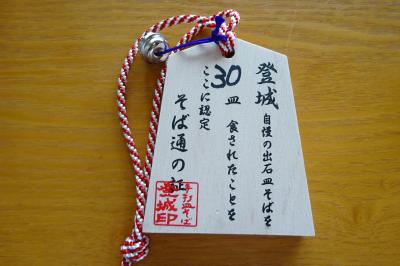 登城
自慢の出石皿そばを
30皿 食されたことを
ここに認定
そば通の証
手打皿そば
登城
印